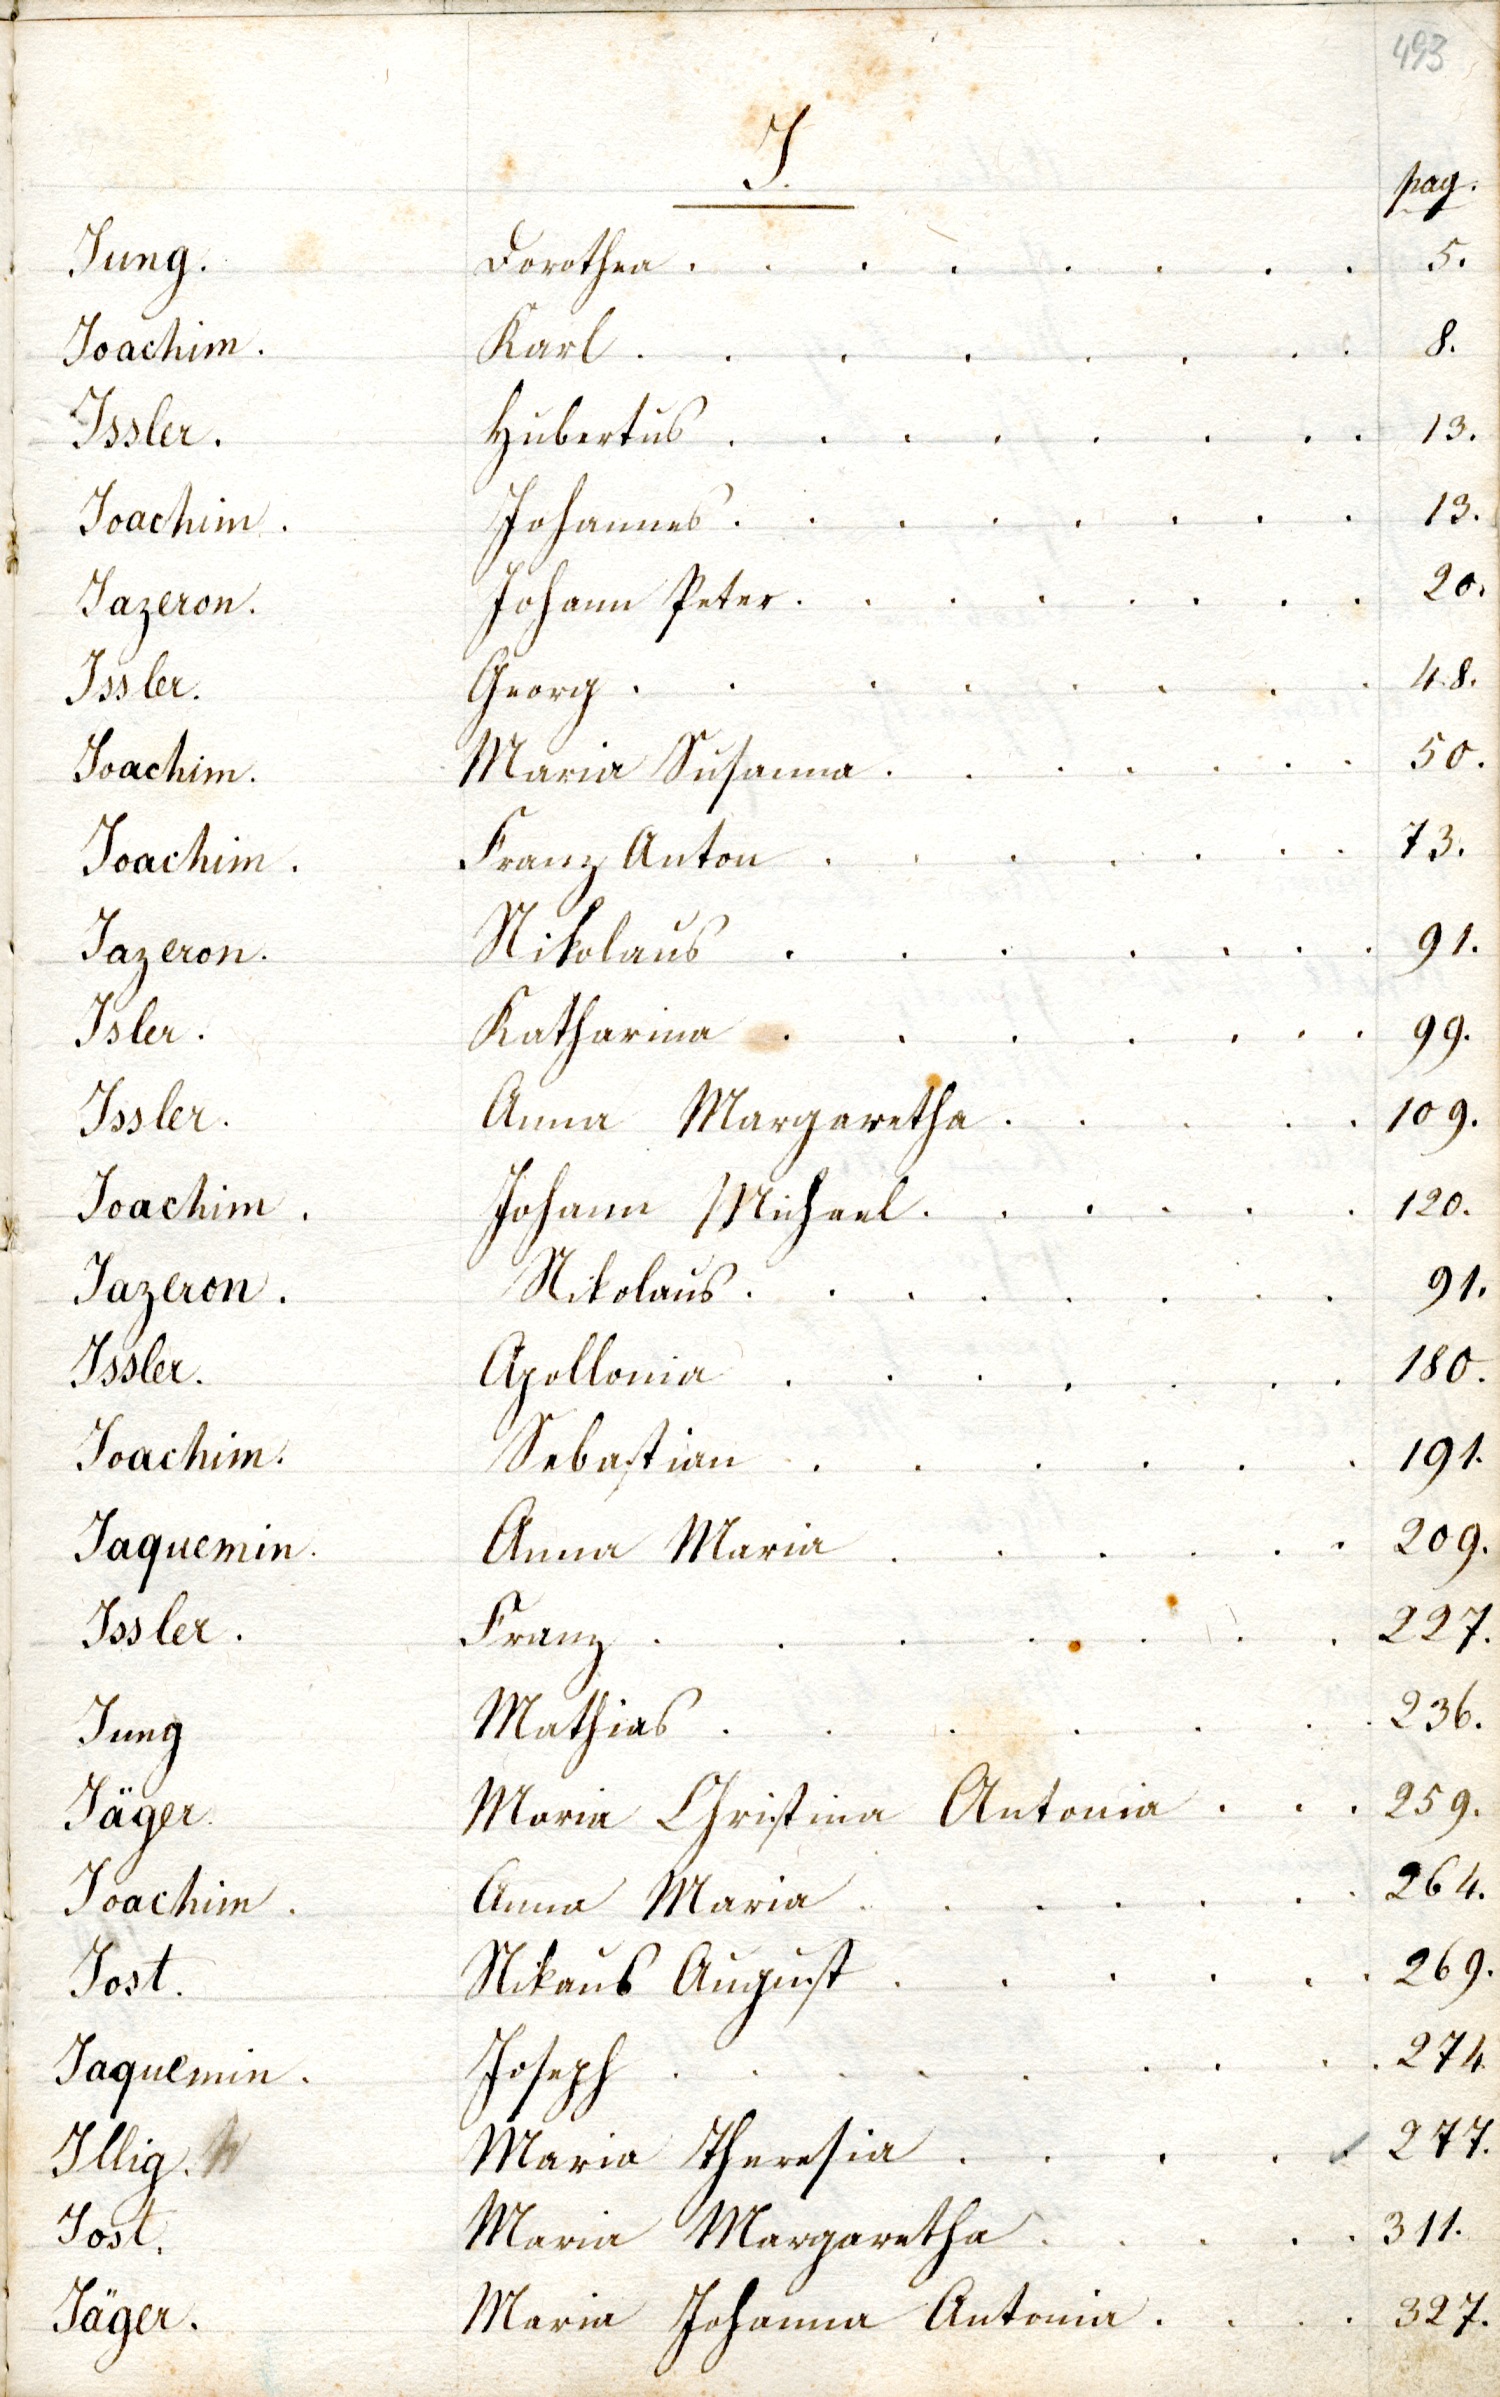 493
J.
pag.
Jung. Dorothea . . . . . . . . 5.
Joachim. Karl . . . . . . . . 8.
Issler. Hubertus . . . . . . . . 13.
Joachim. Johannes . . . . . . . . 13.
Jazeron. Johann Peter . . . . . . . . 20.
Issler. Georg . . . . . . . . 48.
Joachim. Maria Susanna . . . . . . . 50.
Joachim. Franz Anton . . . . . . . 73.
Jazeron. Nikolaus . . . . . . . 91.
Isler. Katharina . . . . . . . 99.
Issler. Anna Margaretha . . . . . 109.
Joachim. Johann Michael . . . . . . 120.
Jazeron. Nikolaus . . . . . . . . 91.
Issler. Apollonia . . . . . . . 180.
Joachim. Sebastian . . . . . . 191.
Jaquemin. Anna Maria . . . . . . 209.
Issler. Franz . . . . . . . 227.
Jung Mathias . . . . . . . 236.
Jäger. Maria Christina Antonia . . . 259.
Joachim. Anna Maria . . . . . . . 264.
Jost. Nikaus August . . . . . . 269.
Jaquemin. Joseph . . . . . . . . 274
Illig. Maria Theresia . . . . 277.
Jost. Maria Margaretha . . . . . 311.
Jäger. Maria Johanna Antonia . . . . 327.